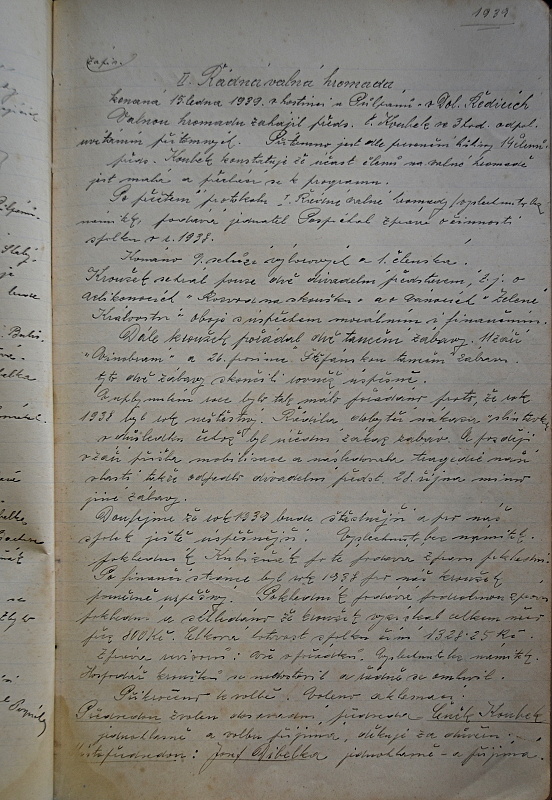 1939
Zápis.
II. Řádná valná hromada
konaná 15. ledna 1939 v hostinci u Půlpánů v Dol. Ředicích
Valnou hromadu zahájil předs. Č. Koubek ve 3 hod. odpol.
uvítáním přítomných. Přítomno jest dle presenční listiny 19 členů
předs. Koubek konstatuje že účast členů na valné hromadě
jest malá a přechází se k programu.
Po přečtení protokolu I. Řádné valné hromady vyslechnuto bez
námitky, podává jednatel Pospíchal zprávu o činnosti
spolku v r. 1938.
Konáno 9 schůzí výborových a 1. členská.
Kroužek sehrál pouze dvě divadelní představení, t. j. o
velikonocích "Rozvod na zkoušku" a o vánocích "Zelené
Království" oboje s úspěchem morálním i finančním.
Dále kroužek pořádal dvě taneční zábavy. V září
"Vinobraní" a 26. prosince Štěpánskou taneční zábavu.
tyto dvě zábavy skončili rovněž úspěšně.
V uplynulém roce bylo tak málo pořádáno proto, že rok
1938 byl rok nešťastný. Řádila dobytčí nákaza
v důsledku čehož byl úřední zákaz zábav. A později
v září přišla mobilisace a následovala tragedie naší
vlasti takže odpadlo divadelní předst. 28. října mimo
jiné zábavy.
Doufejme že rok 1939 bude šťastnější a pro náš
spolek ještě úspěšnější. Vyslechnuto bez námitek.
pokladník Kubizňák podává zprávu pokladní.
Po finanční stránce byl rok 1938 pro náš kroužek
poměrně úspěšný. Pokladník podává podrobnou zprávu
pokladní a shledáno že kroužek vyzískal celkem něco
přes 800 Kč. Celková hotovost spolku činí 1328.25 Kč.
Zpráva revisorů: vše v pořádku. Vyslechnuto bez námitek.
Hospodář kroužku se nedostavil a řádně se omluvil.
Přikročeno k volbě. Voleno aklamací:
Předsedou zvolen dosavadní předseda Čeněk Koubek
jednohlasně a volbu přijímá, děkuje za důvěru.
Místopředsedou: Josef Dibelka jednohlasně a přijímá.